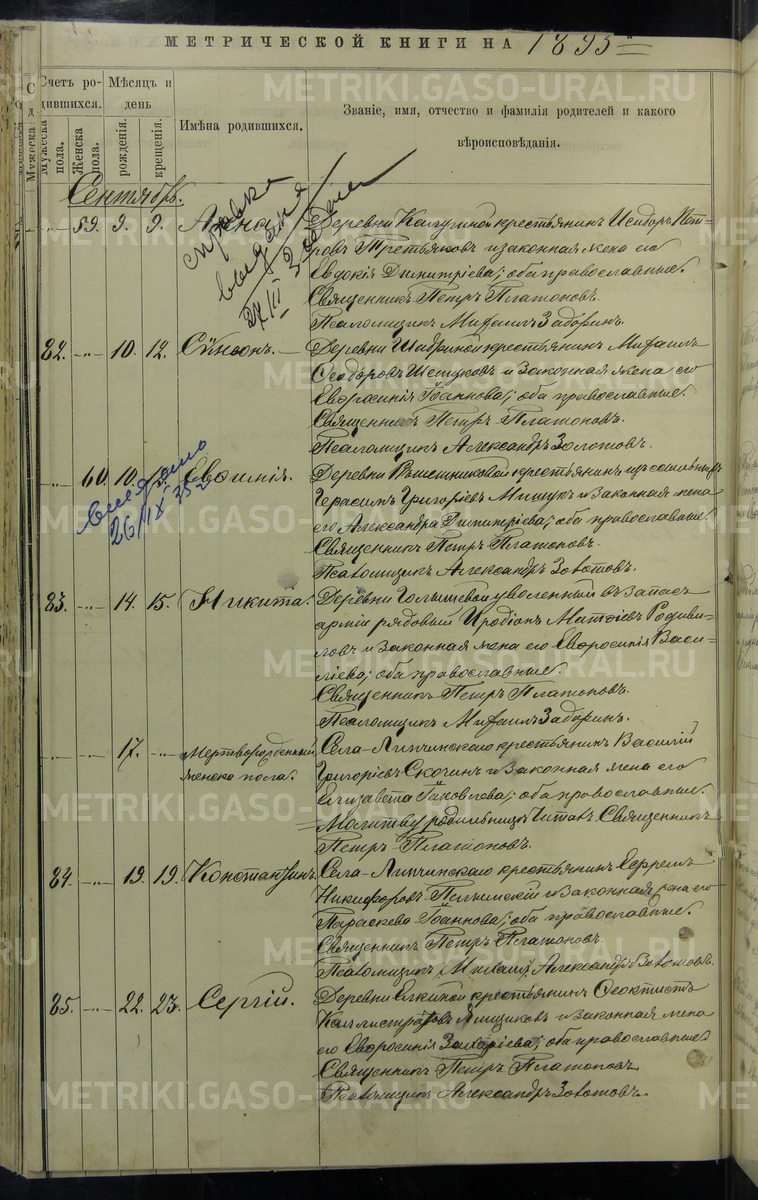 МЕТРИЧЕСКОЙ КНИГИ НА 1895
Счетъ родившихся. Мѣсяцъ и день Имѣна родившихся. Званіе, имя, отчество и фамилія родителей и какого вѣроисповѣданія.
Мужеска пола. Женска пола. рожденія. крещенія.
Сентябрь.
справка
выдана
59. 9. 9. Анна Деревни Калугиной крестьянинъ Исидоръ Пет-
ровъ Третьяковъ и законная жена его
Евдокія Димитріева; оба православные.
Священникъ Петръ Платоновъ.
Псаломщикъ Михаилъ Задоринъ.
82. -"- 10. 12. Сѵмеонъ. Деревни Шадриной крестьянинъ Михаилъ
Ѳеодоровъ и законная жена его
Евфросинія Іоаннова; оба православные.
Священникъ Петръ Платоновъ.
Псаломщикъ Александръ Золотовъ.
-"- 60. 10. Евѳимія. Деревни крестьянинъ изъ ссыльныхъ
Герасимъ Григорьевъ Мищукъ и законная жена
его Александра Димитріева; оба православные.
Священникъ Петръ Платоновъ.
Псаломщикъ Александръ Золотовъ.
выдано
26/IX 35
83. -"- 14. 15. Никита. Деревни Голышевой уволенный въ запасъ
арміи рядовый Иродіонъ Матѳіевъ Родиви-
ловъ и законная жена его Евфросинія Васи-
ліева; оба православные.
Священникъ Петръ Платоновъ.
Псаломщикъ Михаилъ Задоринъ.
-"- -"- 17. -"- Мертворожденный Села Липчинскаго крестьянинъ Василій
женска пола. Григоріевъ Скочинъ и законная жена его
Елизавета Іаковлева; оба православные.
Молитву родильницѣ читалъ Священникъ
Петръ Платоновъ.
84. -"- 19. 19. Константинъ. Села Липчинскаго крестьянинъ Ефремъ
Никифоровъ Пелымскій и законная жена его
Параскева Іоаннова; оба православные.
Священникъ Петръ Платоновъ.
Псаломщикъ Александръ Золотовъ.
85. -"- 22. 23. Сергій. Деревни Елкиной крестьянинъ Ѳеоктистъ
Каллистратовъ Ямщиковъ и законная жена
его Евфросинія Захаріева; оба православные.
Священникъ Петръ Платоновъ
Псаломщикъ Александръ Золотовъ.
METRIKI.GASO-URAL.RU